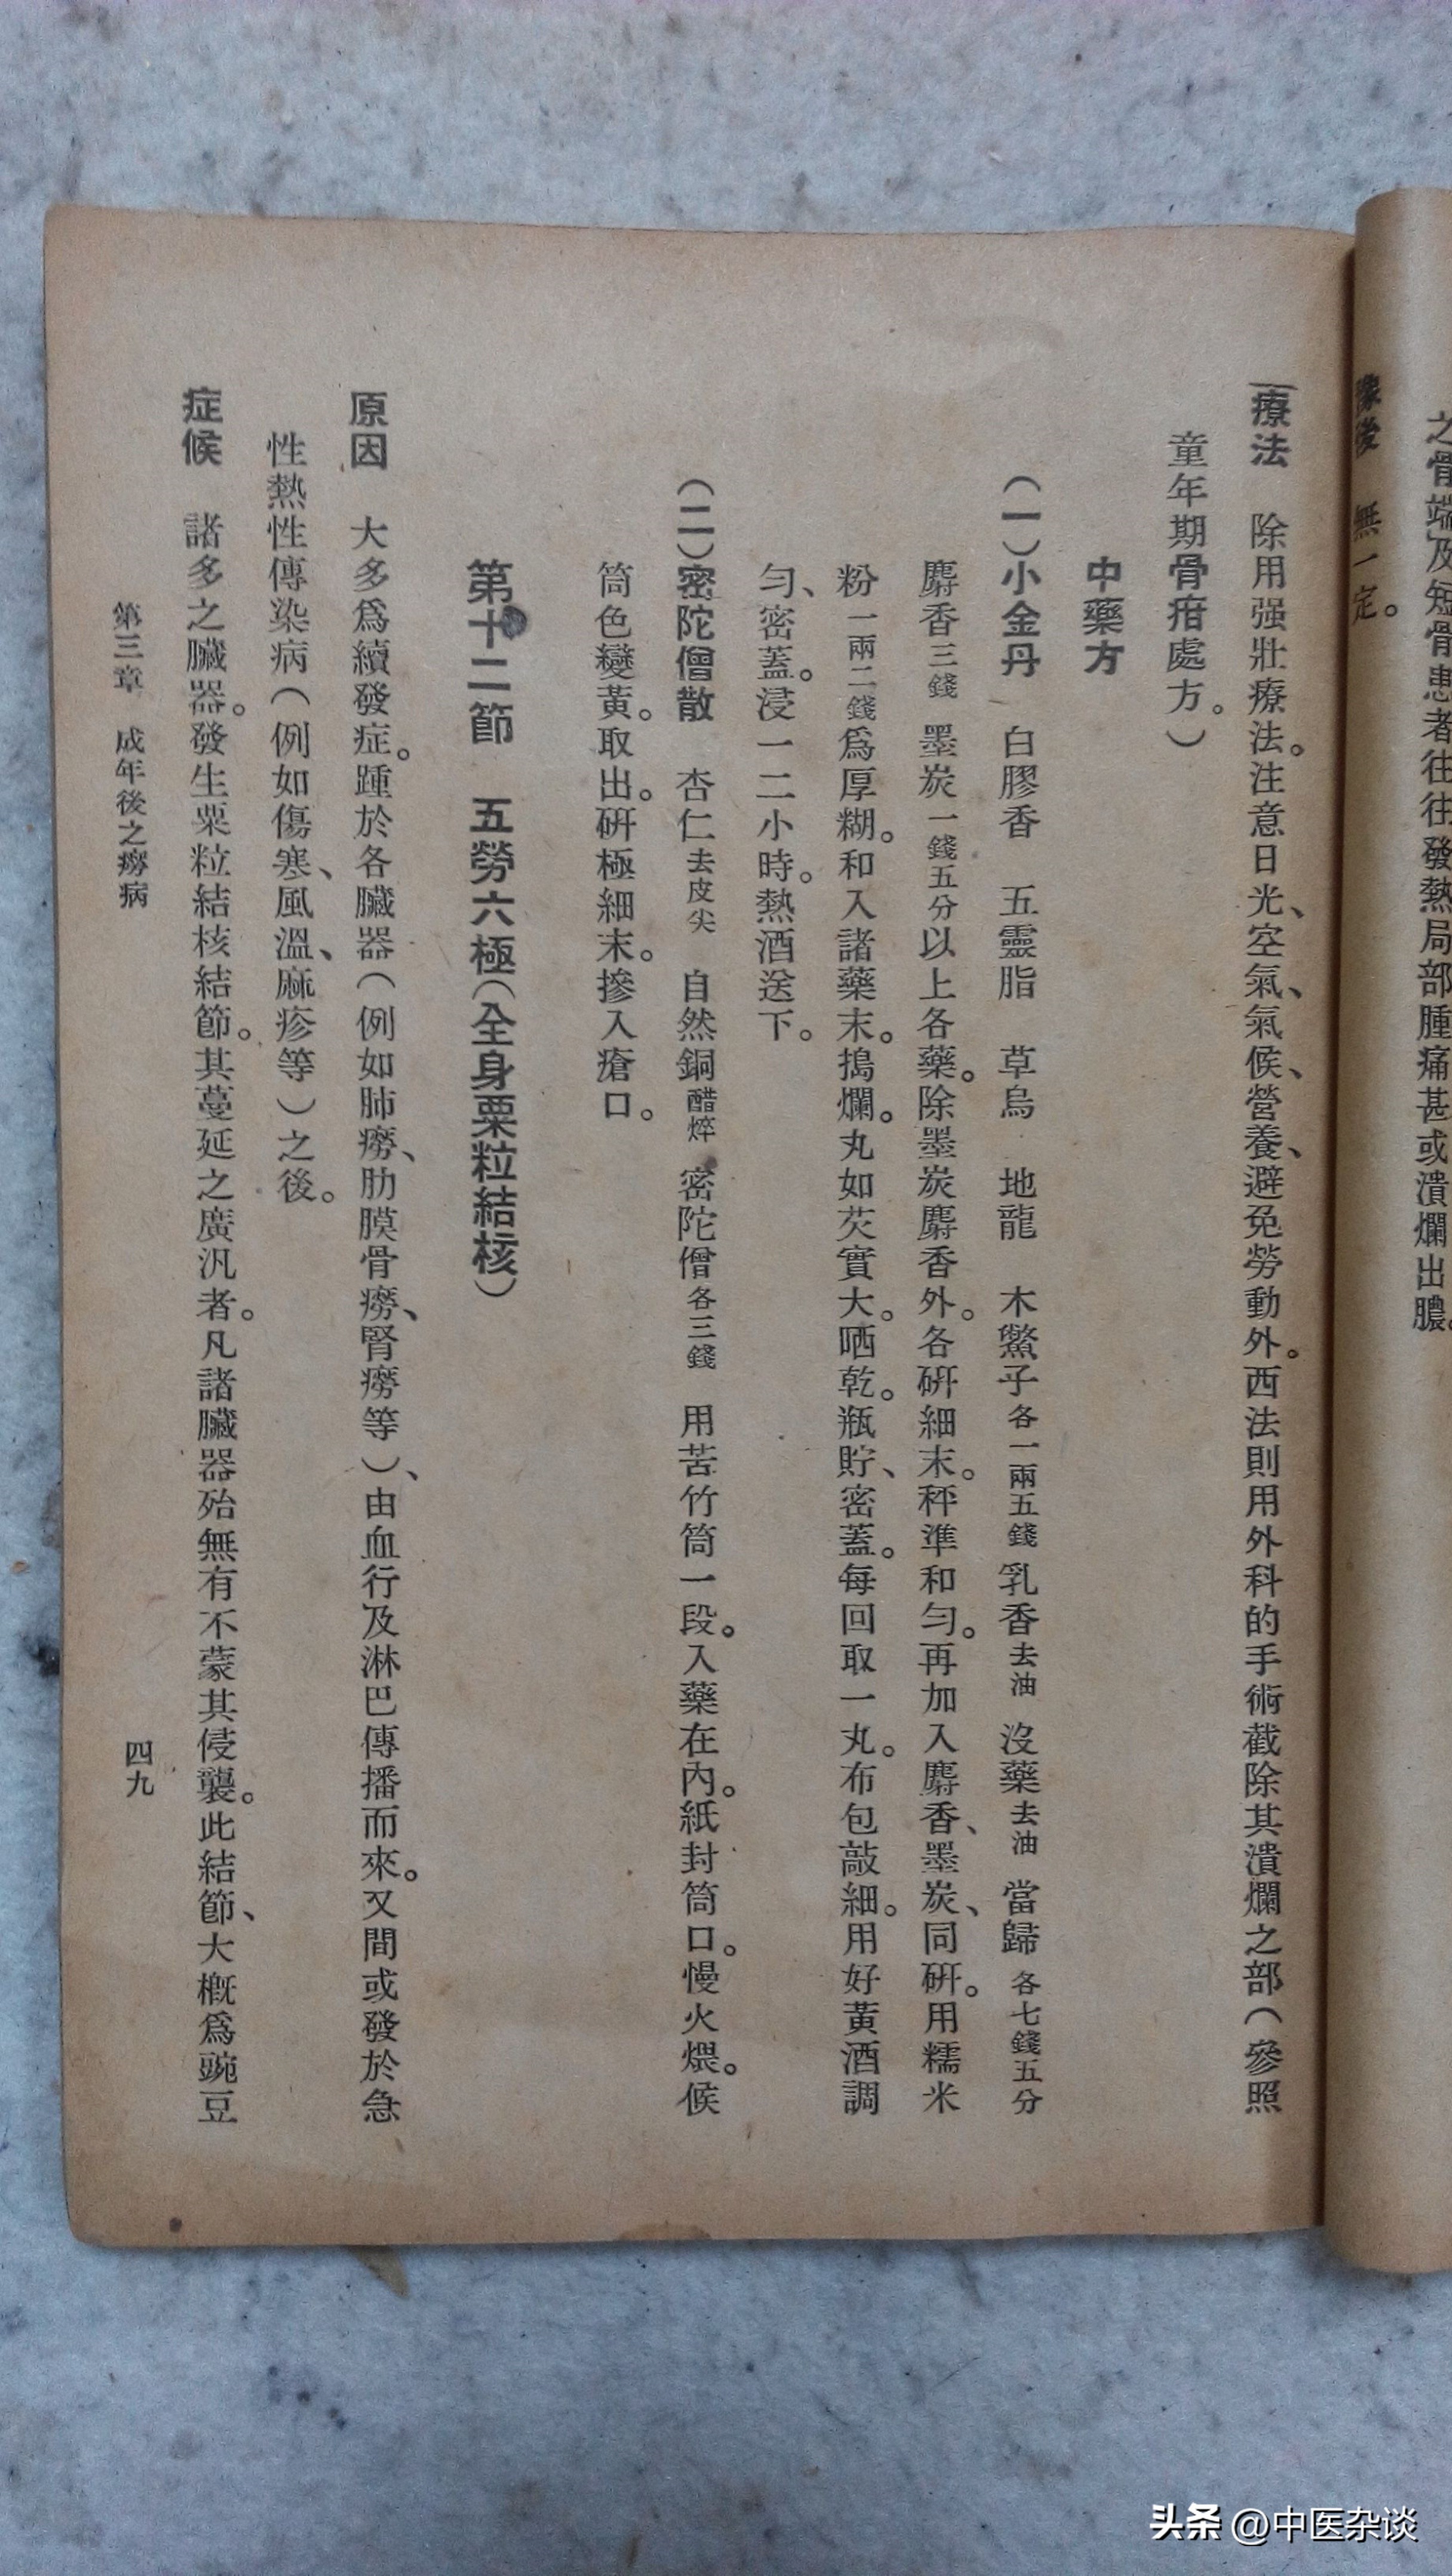 之骨端及短骨患者往往發熱局部腫痛甚或潰爛出膿。
豫後　無一定。
療法　除用强壯療法。注意日光、空氣、氣候、營養、避免勞動外。西法則用外科的手術截除其潰爛之部（參照
童年期骨疳處方。）
中藥方
（一）小金丹　白膠香　五靈脂　草烏　地龍　木鱉子各一兩五錢 乳香去油　沒藥去油　當歸各七錢五分
麝香三錢　墨炭一錢五分以上各藥。除墨炭麝香外。各研細末。秤準和勻。再加入麝香、墨炭、同研。用糯米
粉一兩二錢爲厚糊。和入諸藥末。搗爛。丸如芡實大。晒乾。瓶貯、密蓋。每回取一丸。布包敲細。用好黃酒調
勻、密蓋。浸一二小時。熱酒送下。
（二）密陀僧散　杏仁去皮尖　自然銅醋焠　密陀僧各三錢　用苦竹筒一段。入藥在內。紙封筒口。慢火煨。候
筒色變黃。取出。研極細末。摻入瘡口。
第十二節　五勞六極（全身粟粒結核）
原因　大多爲續發症。踵於各臟器（例如肺癆、肋膜骨癆、腎癆等）、由血行及淋巴傳播而來。又間或發於急
性熱性傳染病（例如傷寒、風溫、麻疹等）之後。
症候　諸多之臟器。發生粟粒結核結節。其蔓延之廣汎者。凡諸臟器殆無有不蒙其侵襲。此結節、大概爲豌豆
第三章　成年後之癆病　四九
头条 @中医杂谈